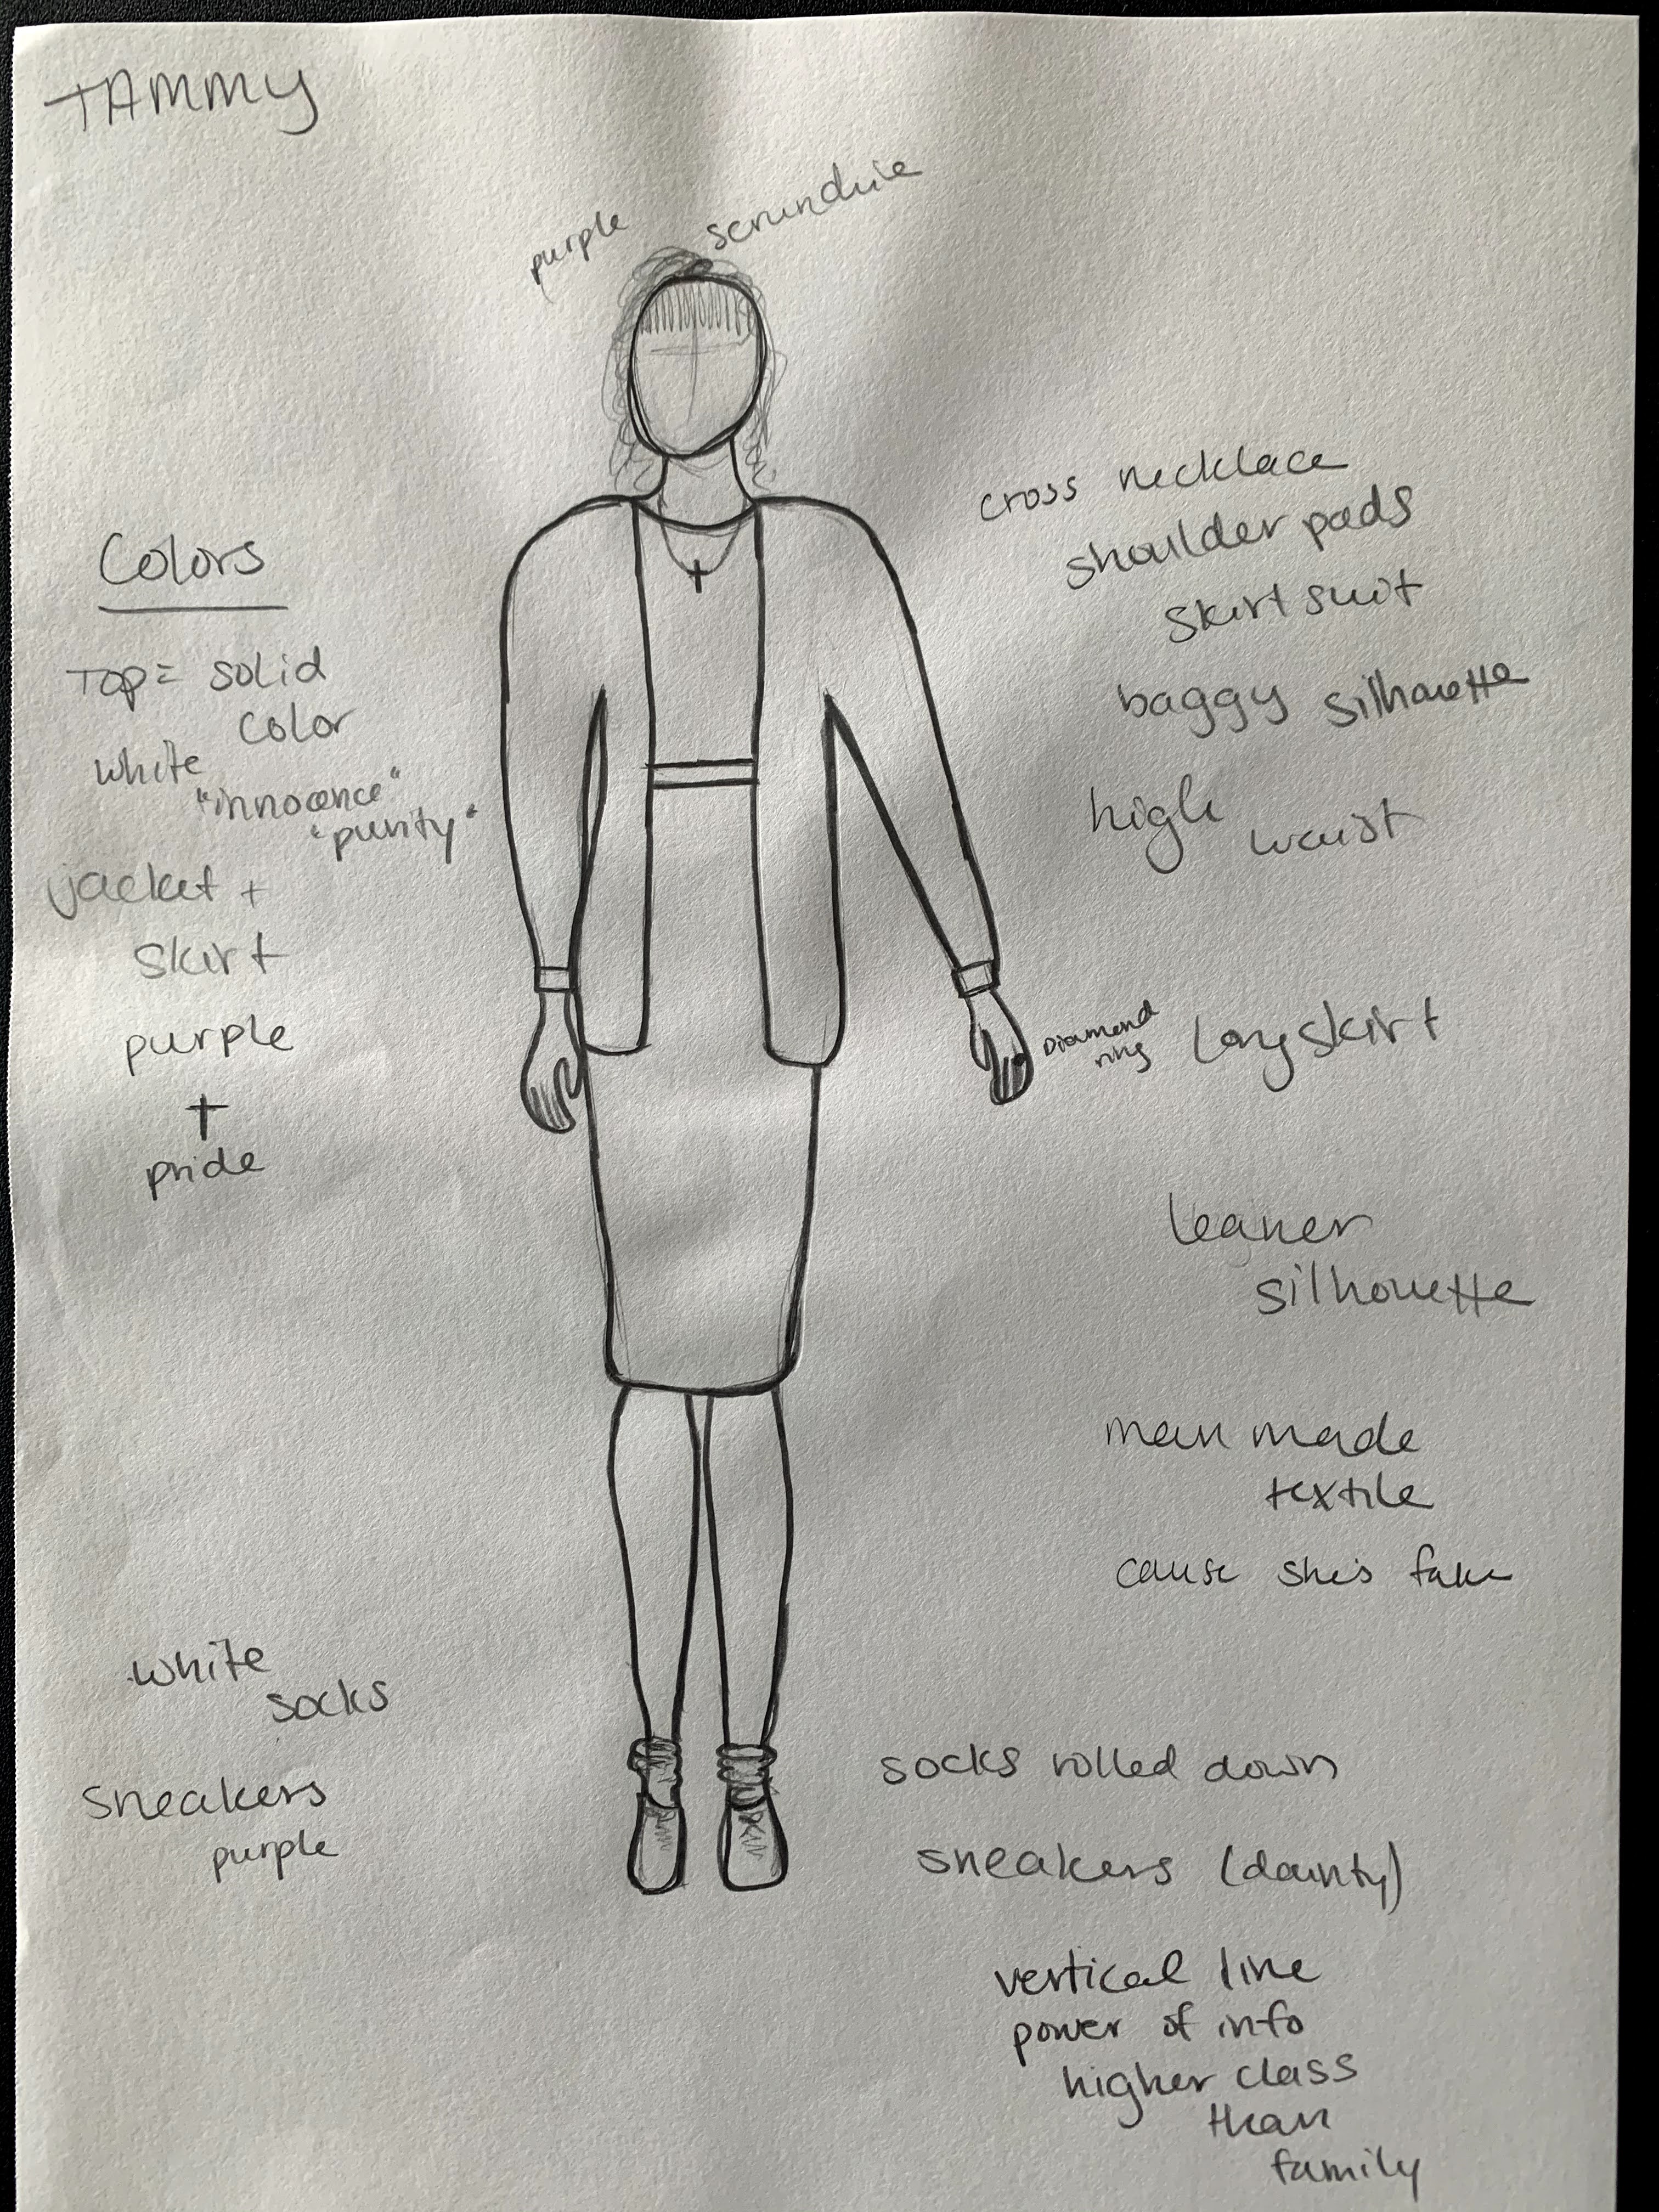 TAMMY
purple scrundhie
Colors
Top = solid
color
white
"innocence"
"purity"
jacket +
skirt
purple
†
pride
white
socks
sneakers
purple
cross necklace
shoulder pads
skirt suit
baggy silhouette
high waist
Diamond
ring
long skirt
leaner
silhouette
man made
textile
cause she's fake
socks rolled down
sneakers (dainty)
vertical line
power of info
higher class
than
family